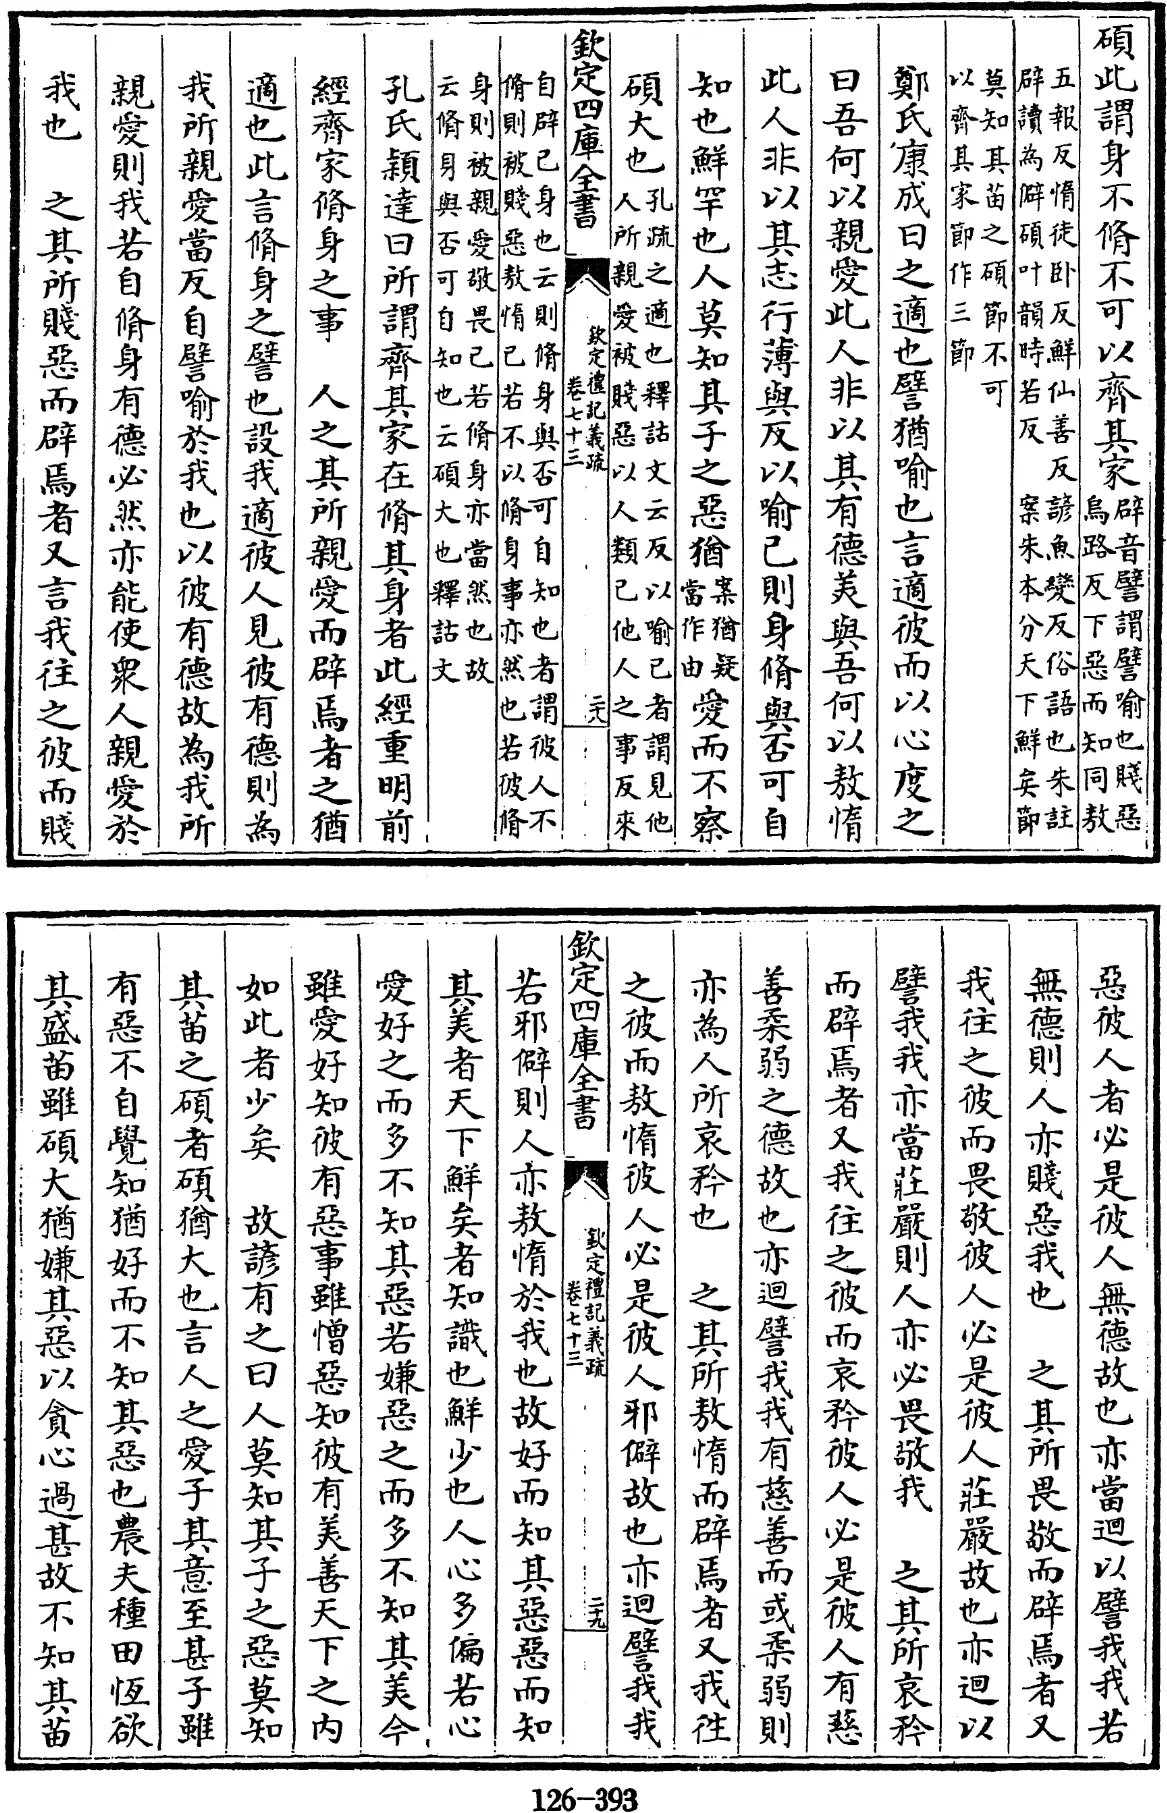 碩此謂身不脩不可以齊其家
辟音譬謂譬喻也賤惡
烏路反下惡而知同敖
五報反惰徒卧反鮮仙善反諺魚變反俗語也朱註
辟讀為僻碩叶韻時若反　案朱本分天下鮮矣節
莫知其苗之碩節不可
以齊其家節作三節
鄭氏康成曰之適也譬猶喻也言適彼而以心度之
曰吾何以親愛此人非以其有德美與吾何以敖惰
此人非以其志行薄與反以喻己則身脩與否可自
知也鮮罕也人莫知其子之惡猶
案猶疑
當作由
愛而不察
碩大也
孔疏之適也釋詁文云反以喻己者謂見他
人所親愛被賤惡以人類己他人之事反來
欽定四庫全書
欽定禮記義疏
卷七十三
二十八
自辟己身也云則脩身與否可自知也者謂彼人不
脩則被賤惡敖惰己若不以脩身事亦然也若彼脩
身則被親愛敬畏己若脩身亦當然也故
云脩身與否可自知也云碩大也釋詁文
孔氏穎達曰所謂齊其家在脩其身者此經重明前
經齊家脩身之事　人之其所親愛而辟焉者之猶
適也此言脩身之譬也設我適彼人見彼有德則為
我所親愛當反自譬喻於我也以彼有德故為我所
親愛則我若自脩身有德必然亦能使眾人親愛於
我也　之其所賤惡而辟焉者又言我往之彼而賤
惡彼人者必是彼人無德故也亦當迴以譬我我若
無德則人亦賤惡我也　之其所畏敬而辟焉者又
我往之彼而畏敬彼人必是彼人莊嚴故也亦迴以
譬我我亦當莊嚴則人亦必畏敬我　之其所哀矜
而辟焉者又我往之彼而哀矜彼人必是彼人有慈
善柔弱之德故也亦迴譬我我有慈善而或柔弱則
亦為人所哀矜也　之其所敖惰而辟焉者又我往
之彼而敖惰彼人必是彼人邪僻故也亦迴譬我我
欽定四庫全書
欽定禮記義疏
卷七十三
二十九
若邪僻則人亦敖惰於我也故好而知其惡惡而知
其美者天下鮮矣者知識也鮮少也人心多偏若心
愛好之而多不知其惡若嫌惡之而多不知其美今
雖愛好知彼有惡事雖憎惡知彼有美善天下之內
如此者少矣　故諺有之曰人莫知其子之惡莫知
其苗之碩者碩猶大也言人之愛子其意至甚子雖
有惡不自覺知猶好而不知其惡也農夫種田恆欲
其盛苗雖碩大猶嫌其惡以貪心過甚故不知其苗
126-393